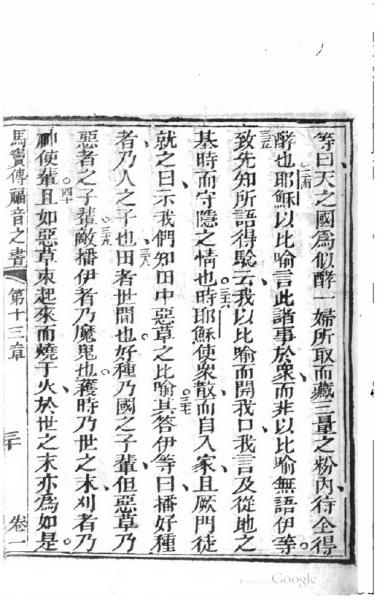 等曰天之國為似酵一婦所取而藏三量之粉內待全得
酵也耶穌以比喻言此諸事於眾而非以比喻無語伊等
致先知所語得騐云我以比喻而開我口我言及從地之
基時而守隱之情也時耶穌使眾散而自入家且厥門徒
就之曰示我們知田中惡草之比喻其答伊等曰播好種
者乃人之子也田者世間也好種乃國之子輩但惡草乃
惡者之子輩敵播伊者乃魔鬼也穫時乃世之末刈者乃
神使輩且如惡草束起來而燒于火於世之末亦為如是
馬竇傳福音之書 第十三章 三十 卷一
三四
三五
三六
三七
三八
三九
四十
Google